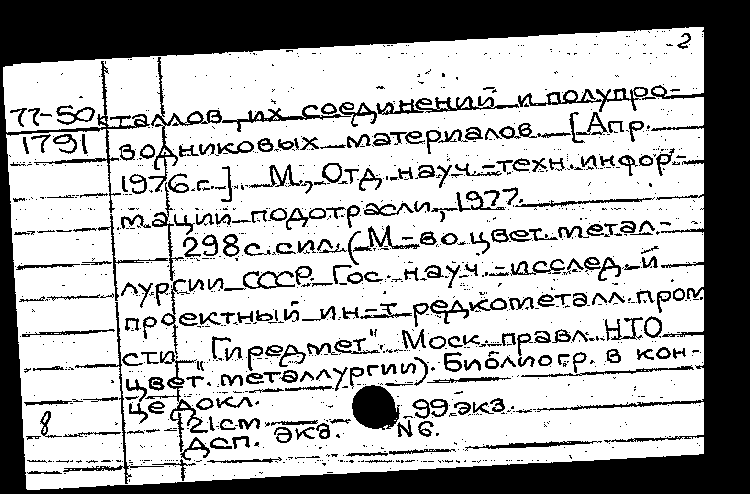 2
77-50к таллов, их соединений и полупро-
1791 водниковых материалов. [Апр.
1976 г.]. М., Отд. науч.-техн. инфор-
мации подотрасли, 1977.
298 с. с ил. (М-во цвет. метал-
лургии СССР. Гос. науч.-исслед. и
проектный ин-т редкометалл. пром
сти "Гиредмет". Моск. правл. НТО
цвет. металлургии). Библиогр. в кон-
це докл.
21 см. 99 экз.
8 ДСП. Экз. N 6.